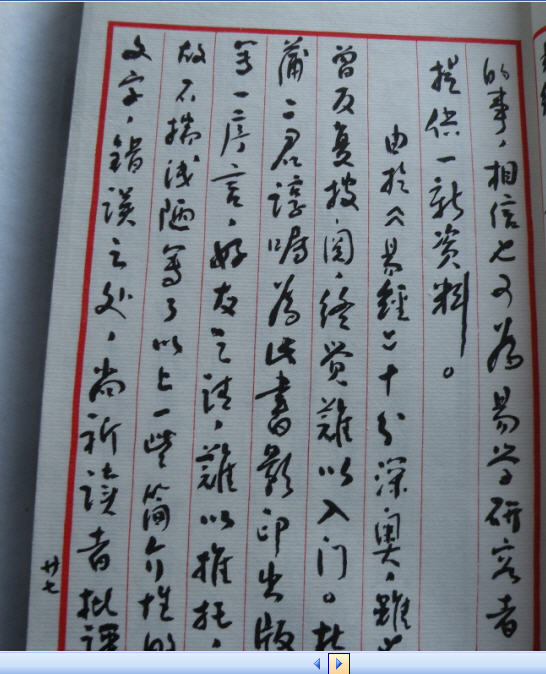 的事，相信也可为易学研究者
提供一新资料。
由於《易經》十分深奥，雖
曾反复披阅，终觉難以入门。杜
蒲二君谆嘱為此書影印出版
写一序言，好友之请，難以推托，
故不揣浅陋写了以上一些简介性的
文字，错误之处，尚祈读者批评
廿七